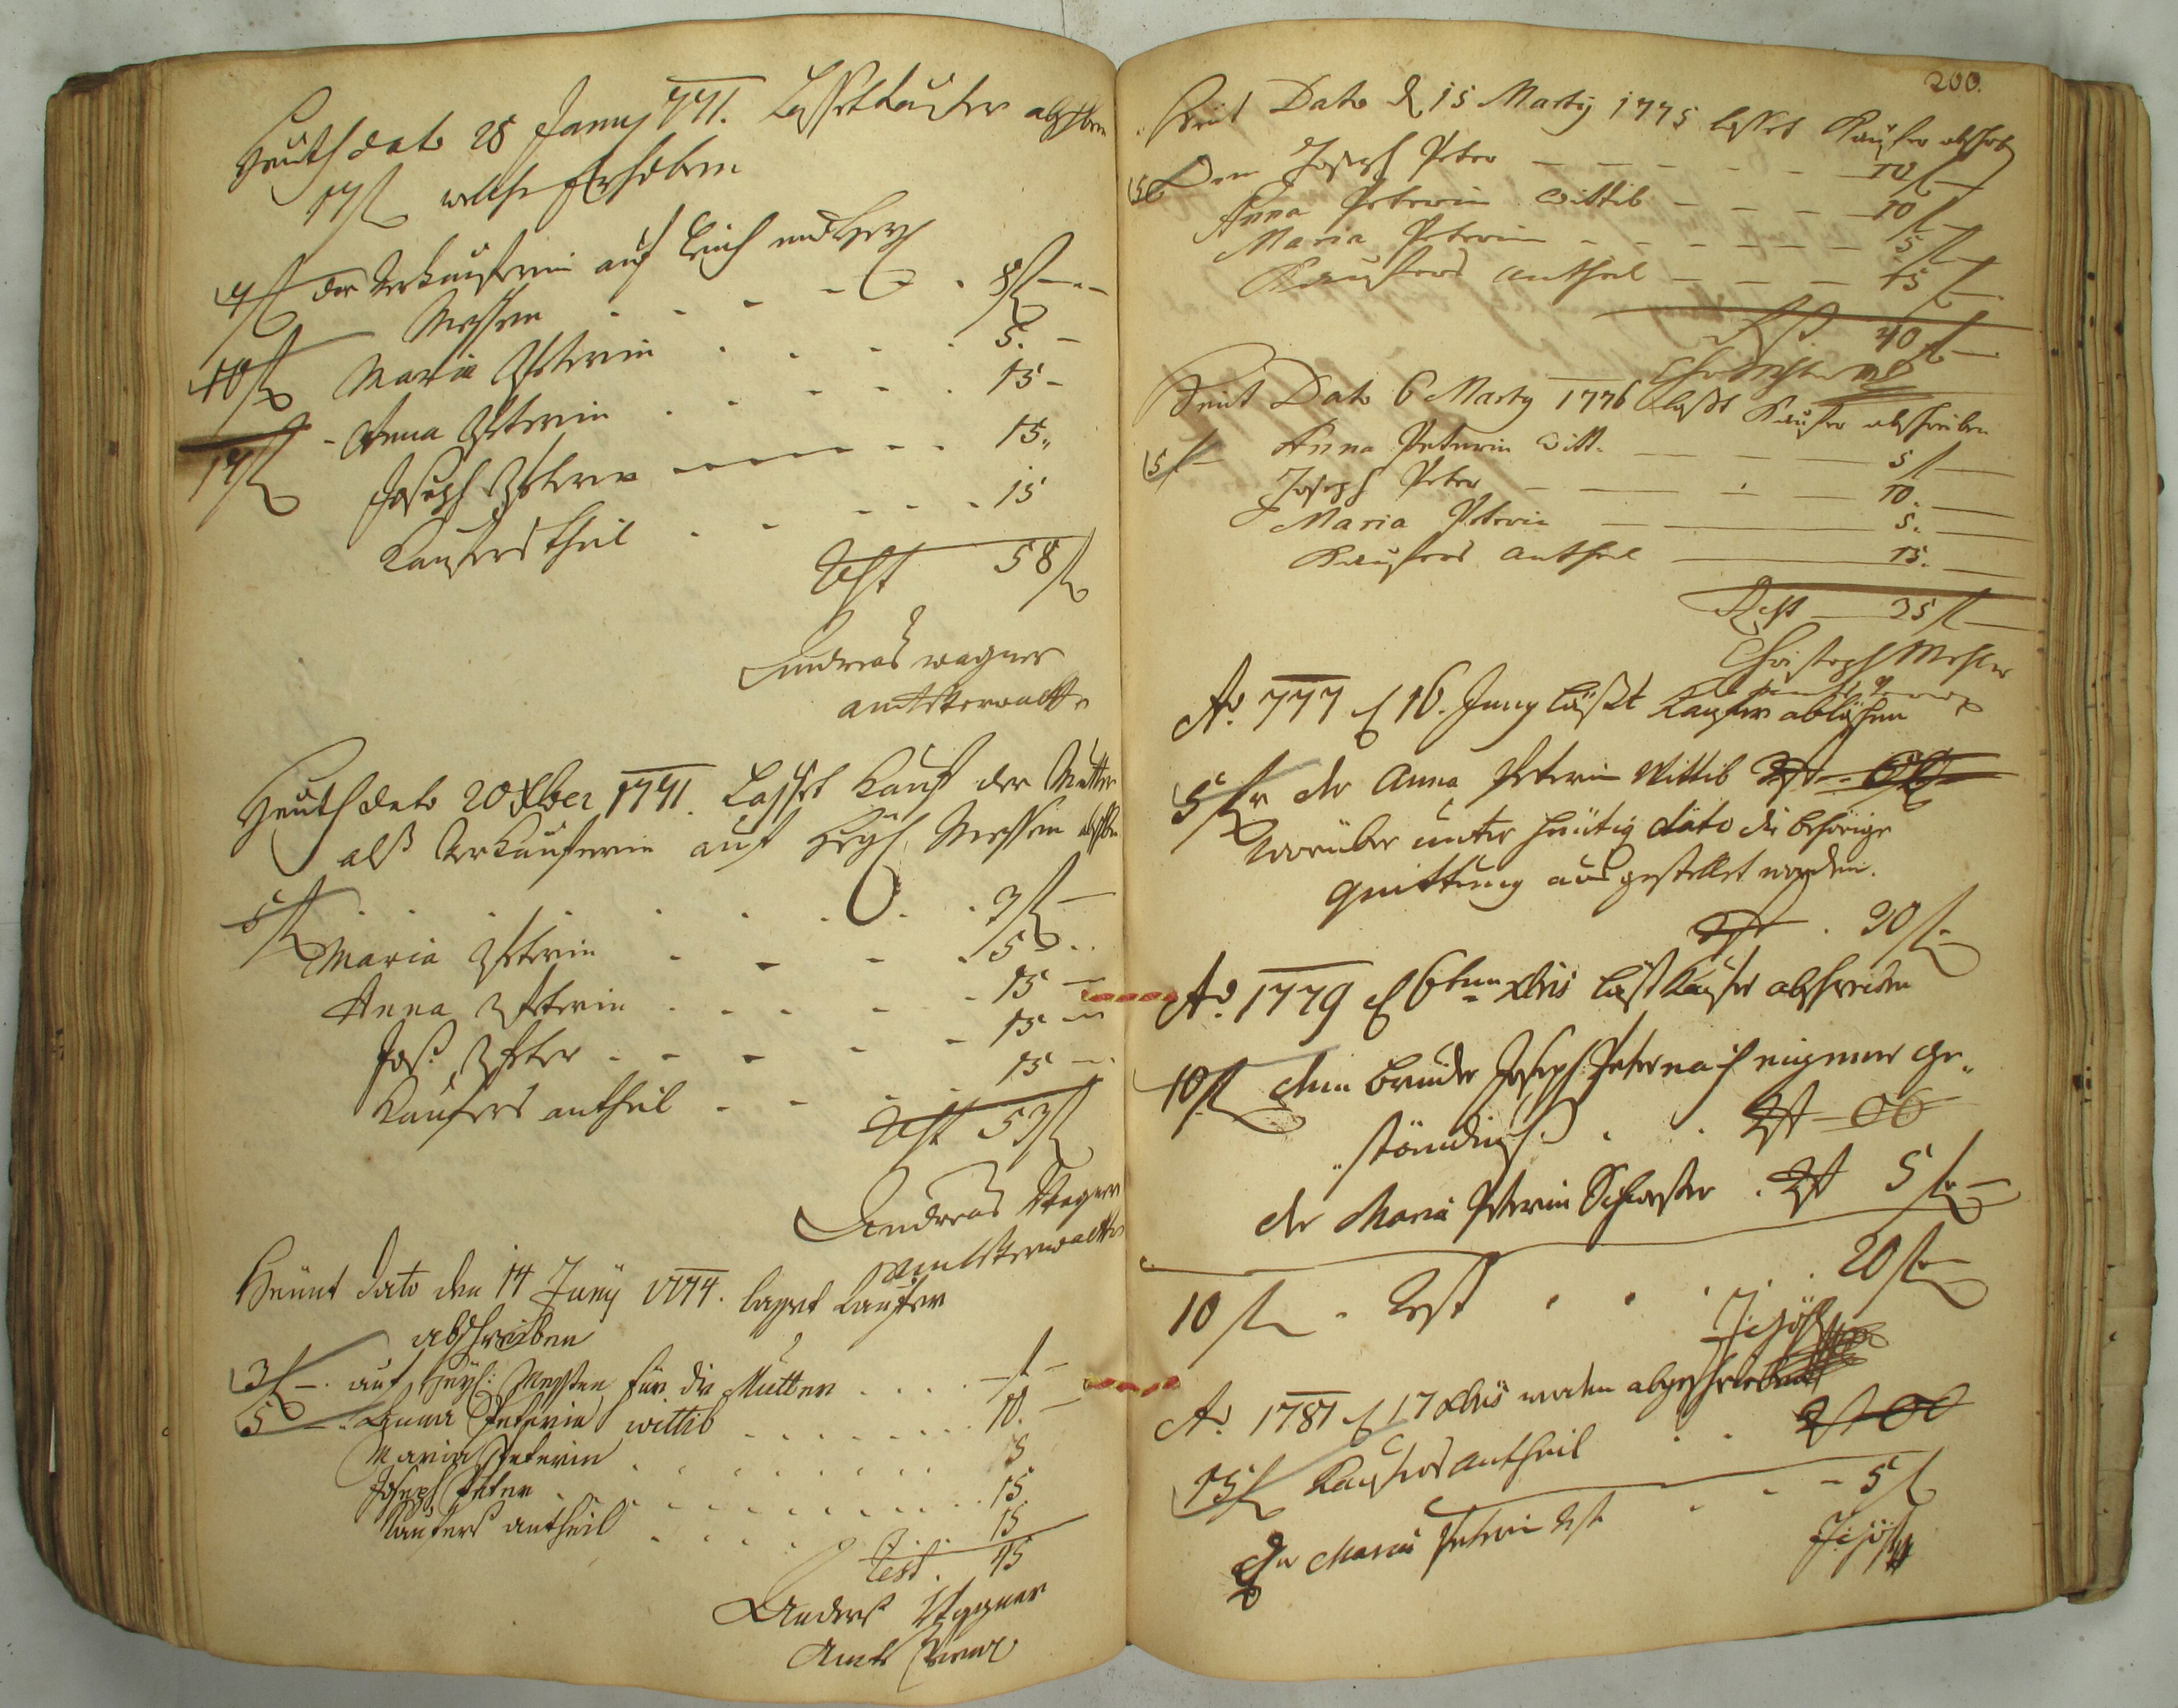 Heüth dato 28 Januy 771. Lasset Kaufer abschreiben
17 fl welche Erhoben
7 fl der Verkauferin auf Leich und Heyl
Messen . . . . 8 fl
10 fl Maria Peterin . . . . 5.
17 fl Anna Peterin . . . . 15
Joseph Peter 15
Kaufers theil . . . . 15
Rest 58 fl
Andreas Wagner
amtsverwalter
Heüth dato 20 Xber 1771. Lasset Kauf der Mutter
alß Verkauferin auf Heyl. Messen abschreiben
5 fl . . . . 3 fl
Maria Peterin . . . . 5
Anna Peterin . . . . 15
Jos. Peter . . . . 15
Kaufers antheil . . . . 15
Rest 53 fl
Andreas Wagner
amtsverwalter
Heünt dato den 14 Juny 1774. lasset Kaufer
abschreiben
3 fl auf Heyl: Messen für die Mutter . . . . fl
5 Anna Peterin wittib . . . . 10.
Maria Peterin . . . . 5
Joseph Peter . . . . 15.
Kaufers antheil . . . . 15
Rest. 45
Anderß Wagner
Amts
200.
Heint Dato d 15 Marty 1775 lasset Kaufer abschreiben
5 fl Dem Joseph Peter 10 fl
Anna Peterin Wittib 10 fl
Maria Peterin 5 fl
Kaufers antheil 15 fl
Rest 40 fl
Heint Dato 6 Marty 1776 lasset Kaufer abschreiben
5 fl Anna Peterin Witt. 5 fl
Joseph Peter 10.
Maria Peterin 5.
Kaufers antheil 15.
Rest 35 fl
Christoph
Ao. 777 d 16. Juny läßt Kaufer ablösen
5 fl der Anna Peterin Wittib Rst 00
worüber unter heütig dato die behörige
quittung ausgestellet worden.
Rst . 30 fl
Ao. 1779 d 6ten Xbris läst Kaufer abschreiben
10 fl dem Bruder Joseph Peter nach eigener ge„
„ständnuß . . Rst 00
der Maria Peterin Schwester . Rst 5 fl
10 fl . Rest . . . 20 fl
Ao. 1781 d 17 Xbris worden abgeschrieben
15 fl Kaufers antheil . . Rst 00
Der Maria Peterin Rst . . 5 fl